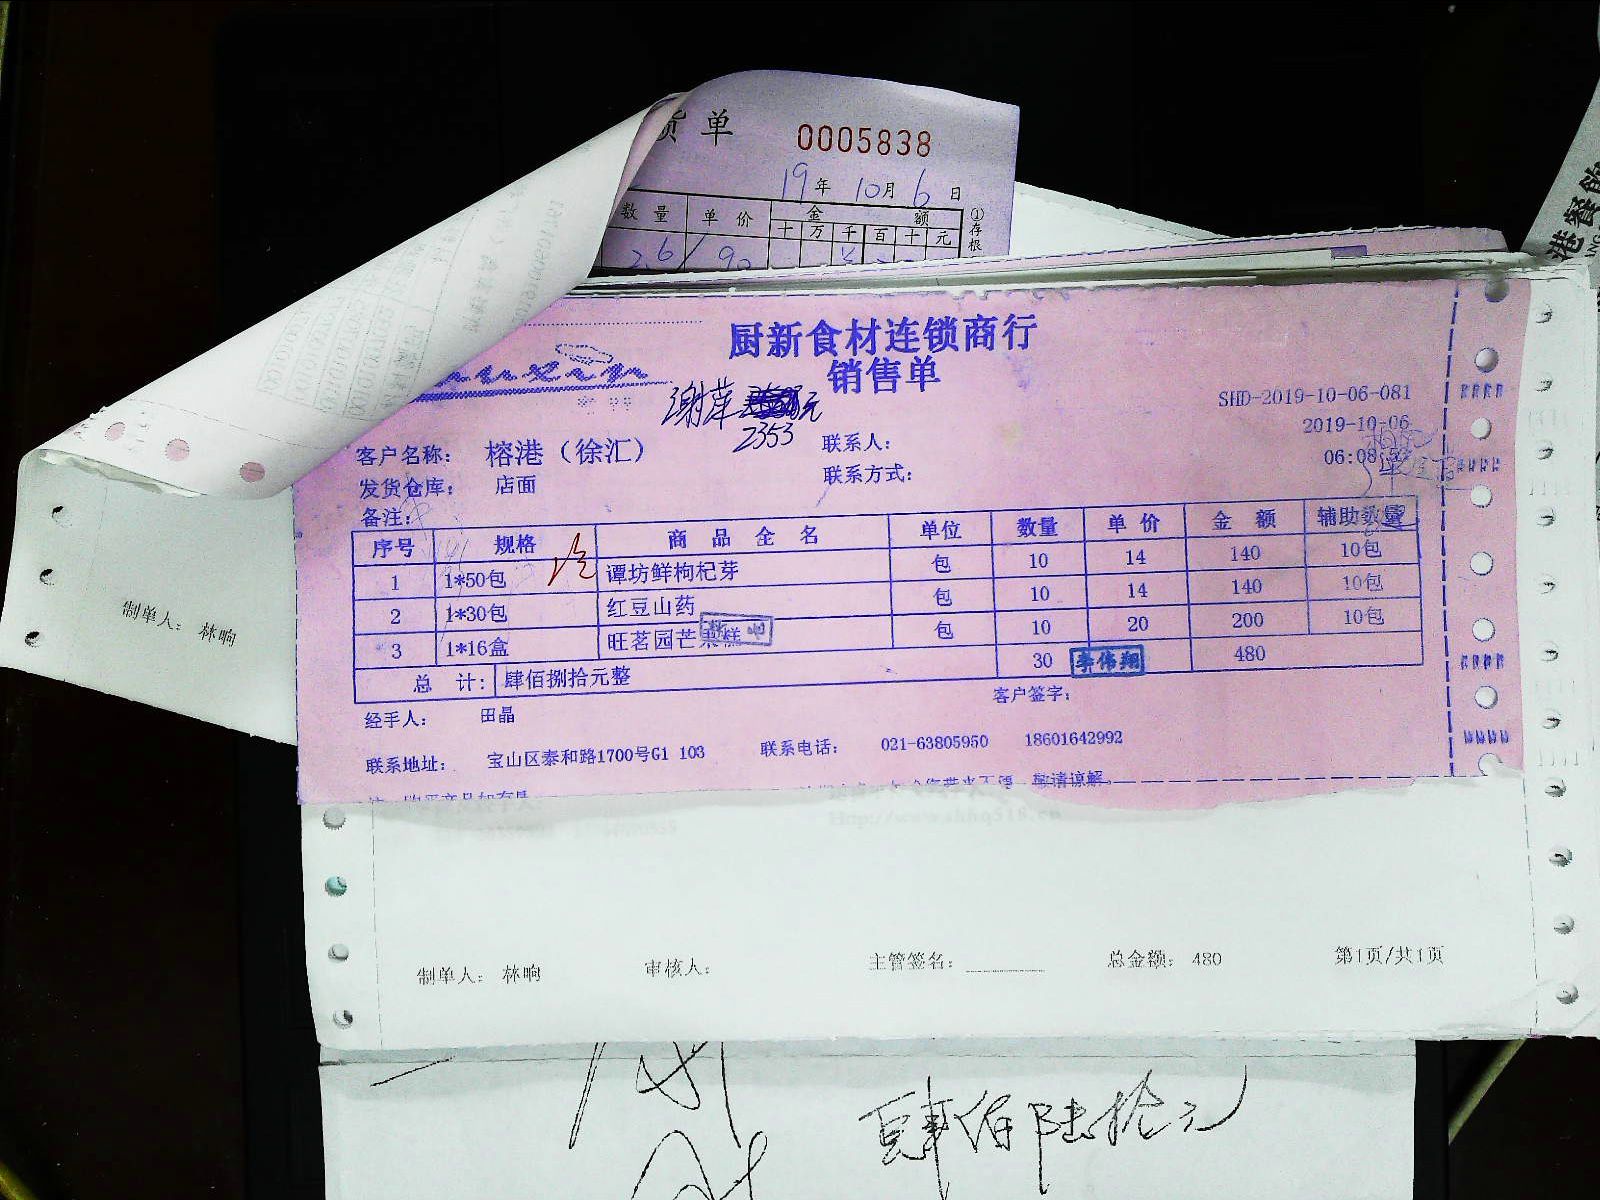 货单 0005838
19年 10月 6日
数量 单价 金额
十 万 千 百 十 元
①存根
26 90
厨新食材连锁商行
销售单
谢萍
2353
SHD-2019-10-06-081
2019-10-06
客户名称: 榕港（徐汇） 联系人:
发货仓库: 店面 联系方式:
备注:
序号 规格 商品全名 单位 数量 单价 金额 辅助数量
1 1*50包 谭坊鲜枸杞芽 包 10 14 140 10包
2 1*30包 红豆山药 包 10 14 140 10包
3 1*16盒 旺茗园芒果糕 包 10 20 200 10包
总计: 肆佰捌拾元整 30 李伟翔 480
经手人: 田晶 客户签字:
联系地址: 宝山区泰和路1700号G1 103 联系电话: 021-63805950 18601642992
敬请谅解。
制单人: 林晌
制单人: 林晌 审核人: 主管签名: 总金额: 480 第1页/共1页
肆佰陆拾元
港餐饮